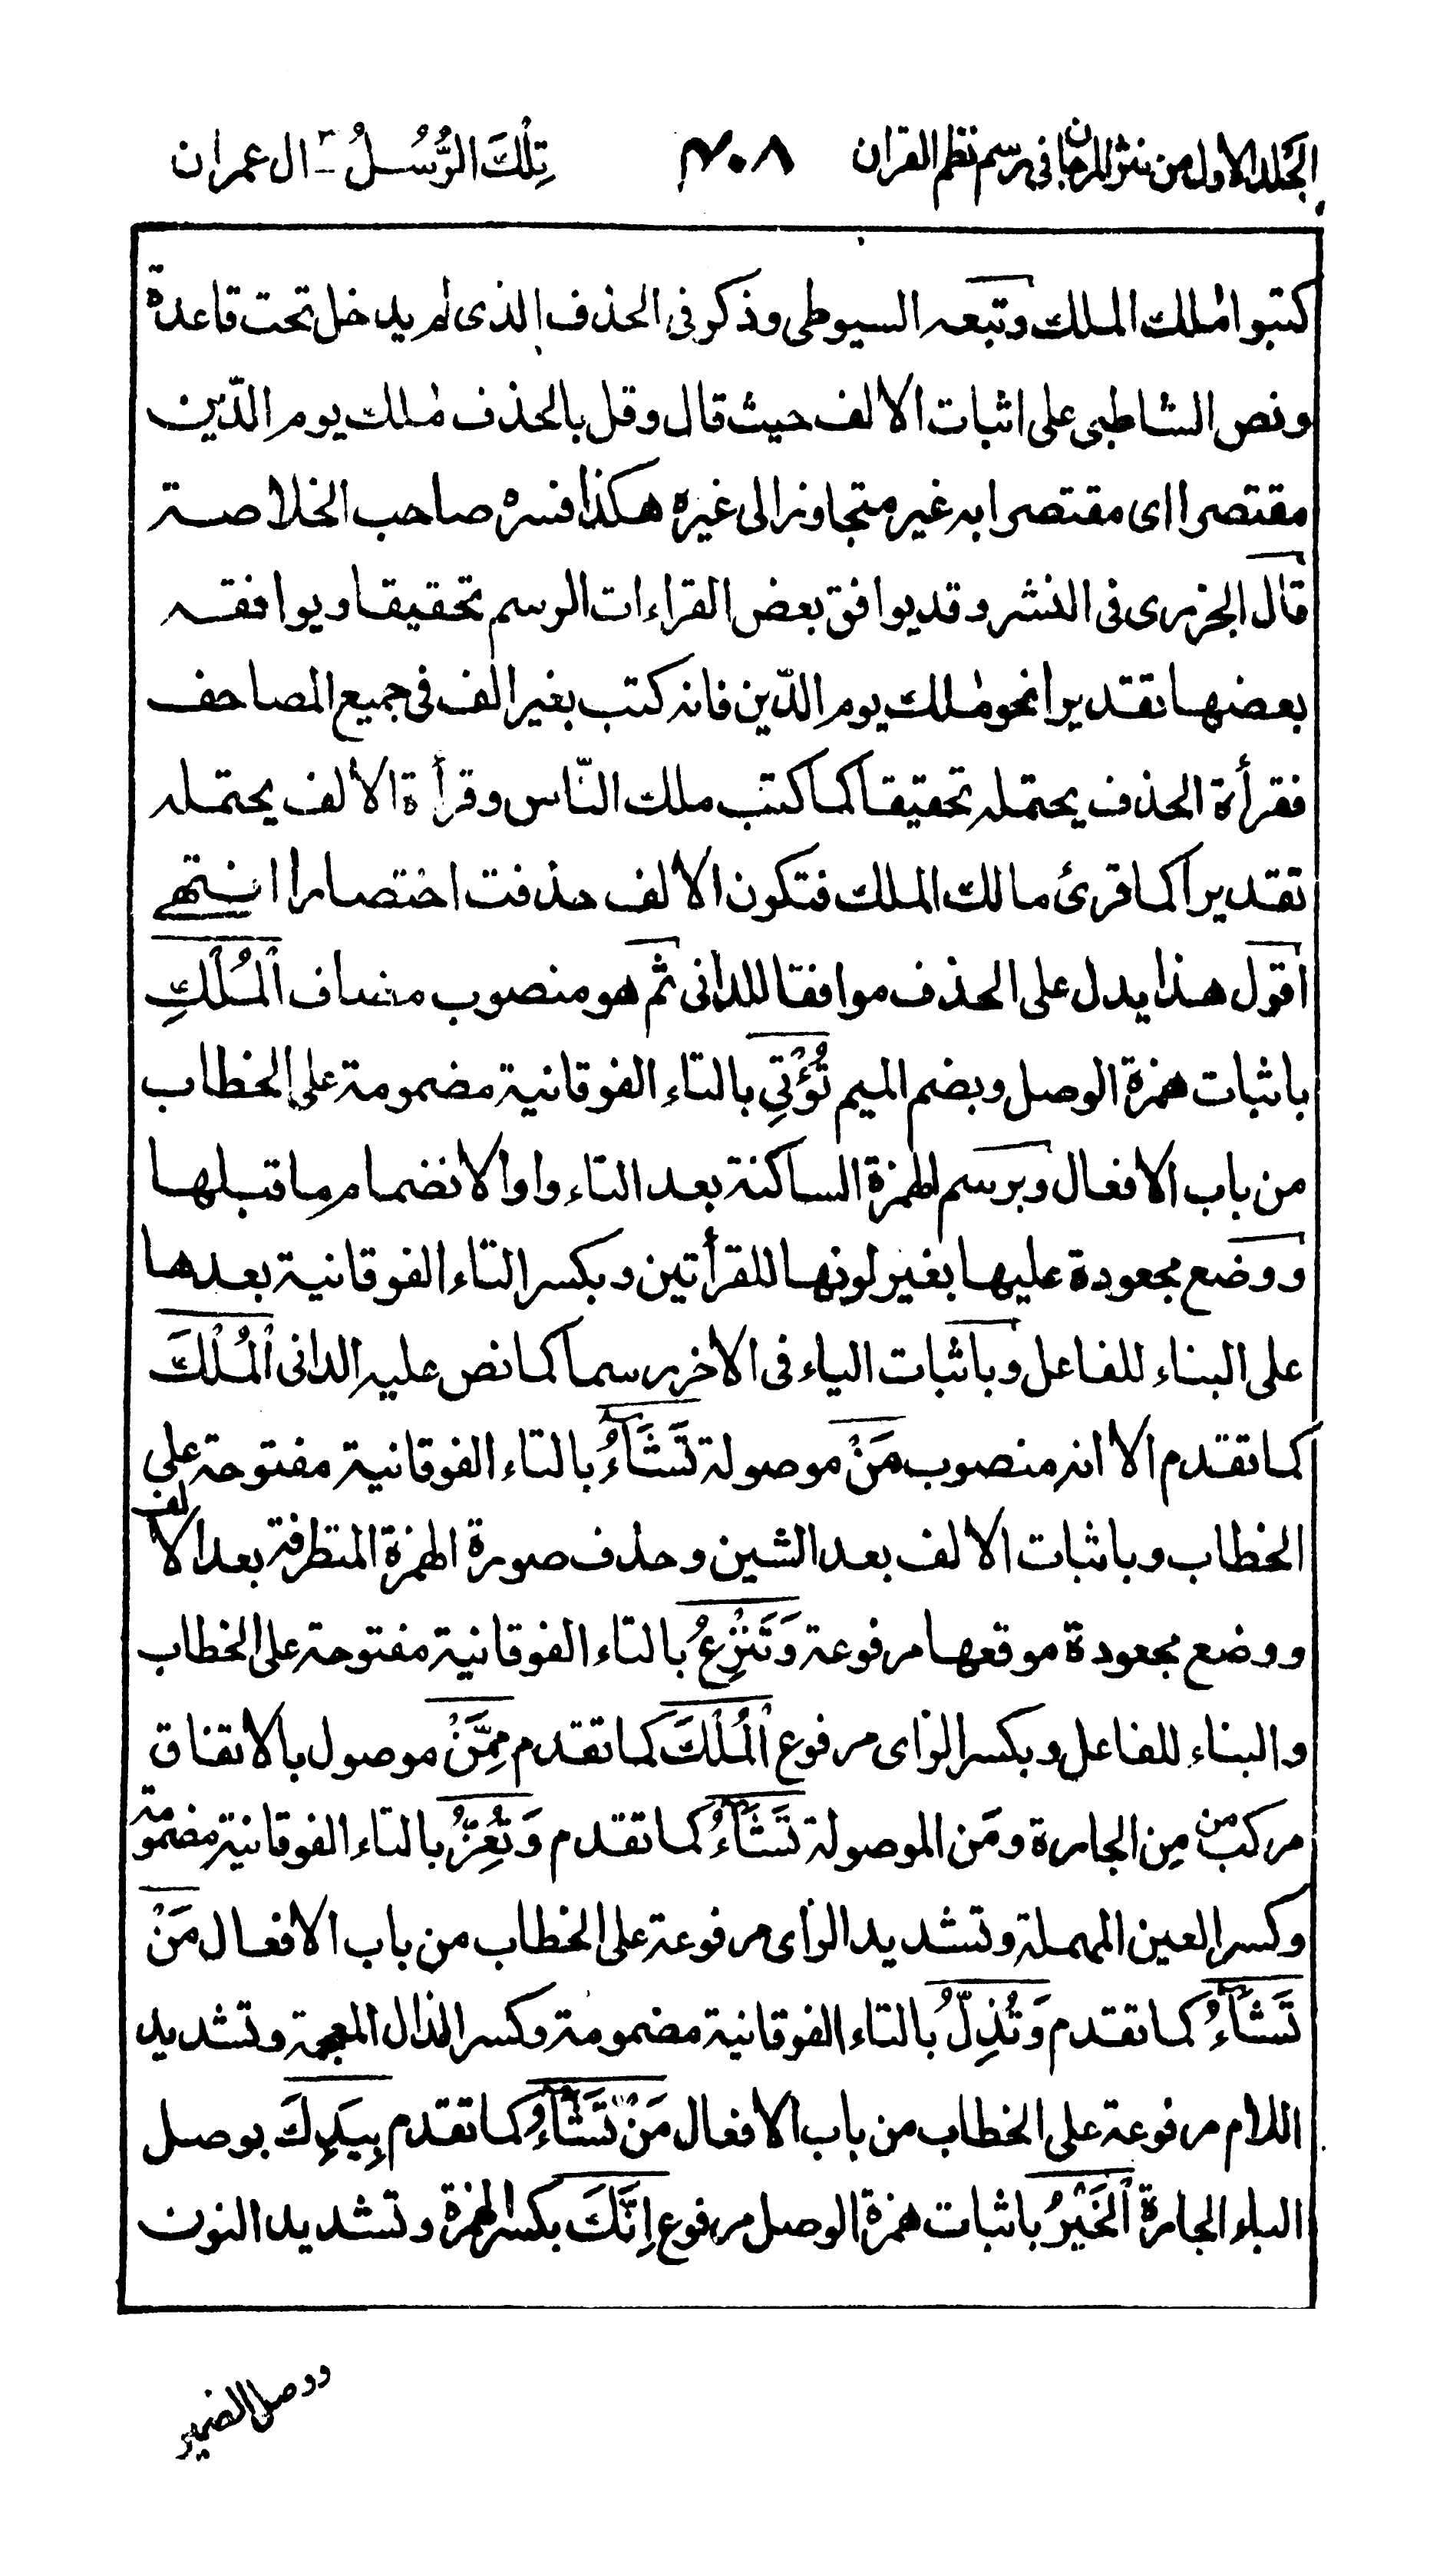 الجلد الاول من نثر المرجان فى رسم نظم القران ٤٠٨ تِلْكَ الرُّسُلُ ٣ - ال عمران
كتبوا مٰلك الملك وتبعه السيوطى وذكر فى الحذف الذى لم يدخل تحت قاعدة
ونص الشاطبى على اثبات الالف حيث قال وقل بالحذف مٰلك يوم الدّين
مقتصرا اى مقتصرا به غير متجاوزا الى غيره هكذا فسره صاحب الخلاصة
قال الجزرى فى النشر وقد يوافق بعض القراءات الرسم تحقيقا ويوافقه
بعضها تقديرا نحو مٰلك يوم الدّين فانه كتب بغير الف فى جميع المصاحف
فقرأة الحذف يحتمله تحقيقا كما كتب ملك النّاس وقرأة الألف يحتمله
تقديراً كما قرئ مالك الملك فتكون الألف حذفت اختصارا انتهى
اقول هذا يدل على الحذف موافقا للدانى ثم هو منصوب مضاف اَلْمُلْكِ
باثبات همزة الوصل وبضم الميم تُؤْتِي بالتاء الفوقانية مضمومة على الخطاب
من باب الافعال وبرسم الهمزة الساكنة بعد التاء واوا لانضمام ما قبلها
ووضع مجعودة عليها بغير لونها للقرأتين وبكسر التاء الفوقانية بعدها
على البناء للفاعل وباثبات الياء فى الاخر رسما كما نص عليه الدانى اَلْمُلْكَ
كما تقدم الا انه منصوب مَنْ موصولة تَشَآءُ بالتاء الفوقانية مفتوحة على
الخطاب وباثبات الالف بعد الشين وحذف صورة الهمزة المتطرفة بعد الالف
ووضع مجعودة موقعها مرفوعة وَتَنْزِعُ بالتاء الفوقانية مفتوحة على الخطاب
والبناء للفاعل وبكسر الزاى مرفوع اَلْمُلْكَ كما تقدم مِمَّنْ موصول بالاتفاق
مركب من مِن الجارة ومَن الموصولة تَشَآءُ كما تقدم وَتُعِزُّ بالتاء الفوقانية مضمومة
وكسر العين المهملة وتشديد الزاى مرفوعة على الخطاب من باب الافعال مَنْ
تَشَآءُ كما تقدم وَتُذِلُّ بالتاء الفوقانية مضمومة وكسر الذال المعجمة وتشديد
اللام مرفوعة على الخطاب من باب الافعال مَنْ تَشَآءُ كما تقدم بِيَدِكَ بوصل
الباء الجارة اَلْخَيْرُ باثبات همزة الوصل مرفوع اِنَّكَ بكسر الهمزة وتشديد النون
ووصل الضمير